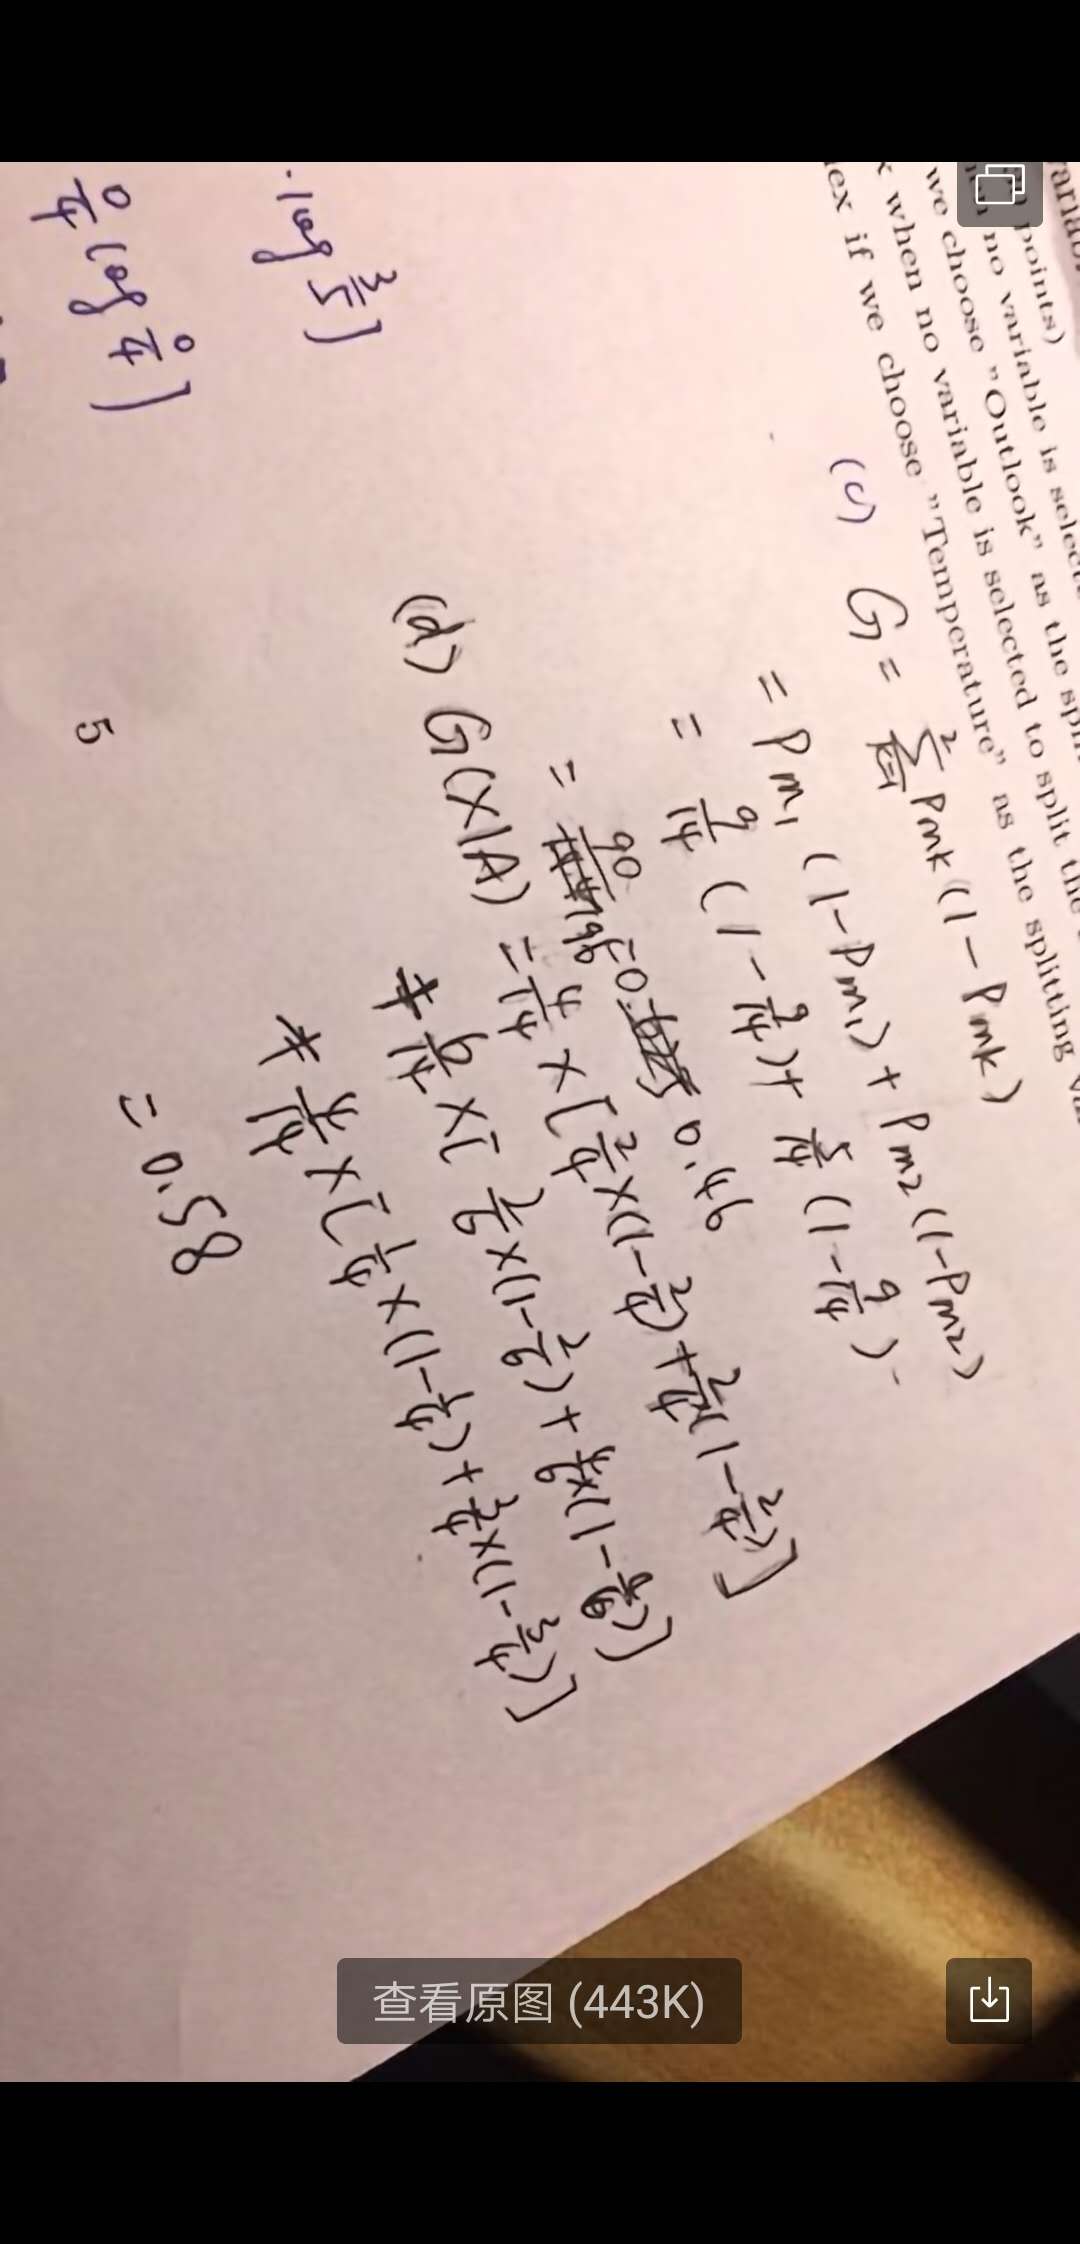 points)
no variable is
we choose "Outlook" as the
when no variable is selected to split the
if we choose "Temperature" as the splitting
(c) G = Σ Pmk (1 - Pmk)
= Pm1 (1-Pm1) + Pm2 (1-Pm2)
= 9/14 (1 - 9/14) + 5/14 (1 -
= 90/196 = 0.46
(d) G(X|A) = 4/14 × [2/4 × (1 - 2/4) + 2/4 × (1 - 2/4)]
6/14 × [2/6 × (1 - 2/6) + 4/6 × (1 - 4/6)]
4/14 × [1/4 × (1 - 1/4) + 3/4 × (1 - 3/4)]
= 0.58
log 3/5]
0/4 log 0/4]
5
查看原图 (443K)